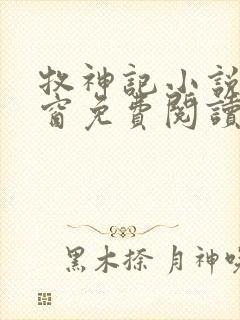 牧神記小說
窗免費閱讀
黑木探月神